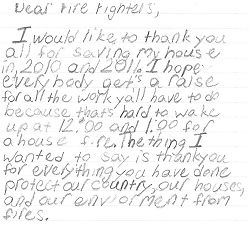 Dear Fire Fighters,
I would like to thank you
all for saving my house
in 2010 and 2016. I hope
everybody gets a raise
for all the work yall have to do
because thats hard to wake
up at 12:00 and 1:00 for
a house fire. The thing I
wanted to say is thankyou
for everything you have done
protect our country, our houses,
and our enviorment from
fires.